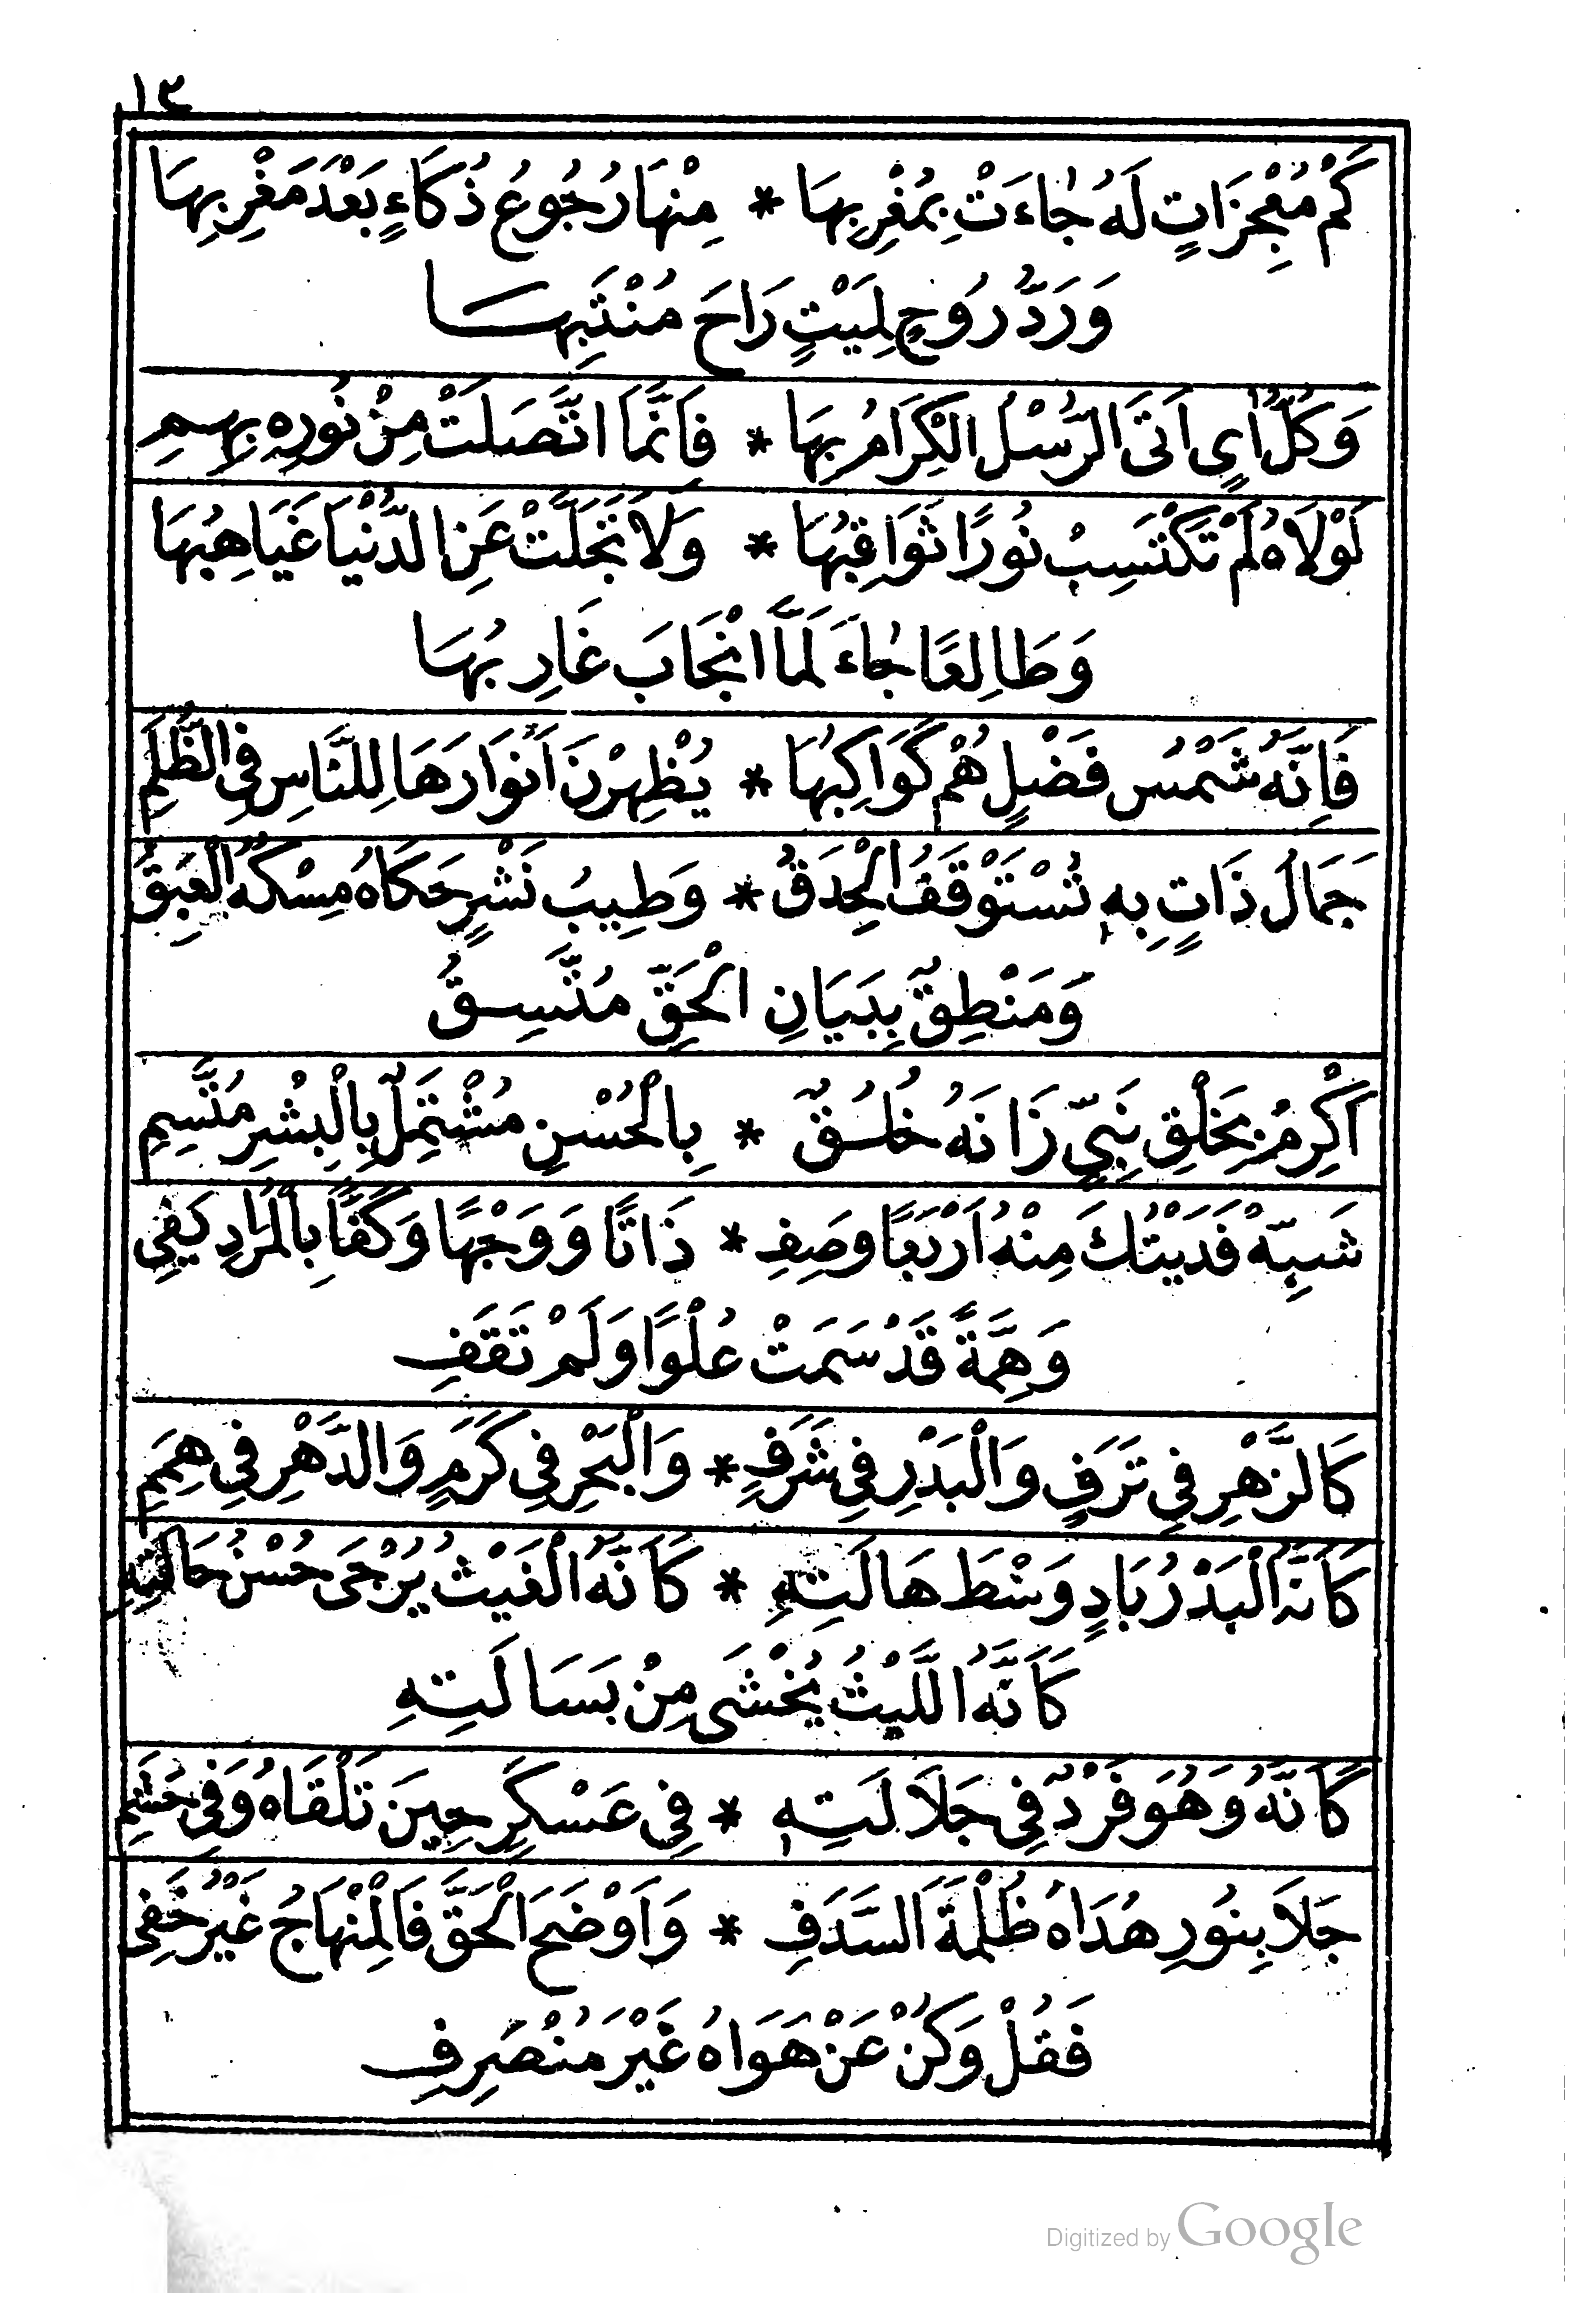 ١٣
كَمْ مُعْجِزَاتٍ لَهُ جَاءَتْ بِمُغْرِبِهَا * مِنْهَا رُجُوعُ ذُكَاءٍ بَعْدَ مَغْرِبِهَا
وَرَدَّ رُوحٍ لِمَيْتٍ رَاحَ مُنْتَبِهَا
وَكُلُّ اٰيٍ اَتَى الرُّسْلُ الْكِرَامُ بِهَا * فَاِنَّمَا اتَّصَلَتْ مِنْ نُورِهِ بِهِمِ
لَوْلَاهُ لَمْ تَكْتَسِبْ نُورًا ثَوَاقِبُهَا * وَلَا تَجَلَّتْ عَنِ الدُّنْيَا غَيَاهِبُهَا
وَطَالِعًا جَاءَ لَمَّا انْجَابَ غَارِبُهَا
فَاِنَّهُ شَمْسُ فَضْلٍ هُمْ كَوَاكِبُهَا * يُظْهِرْنَ اَنْوَارَهَا لِلنَّاسِ فِي الظُّلَمِ
جَمَالُ ذَاتٍ بِهِ تُسْتَوْقَفُ الْحِدَقُ * وَطِيبُ نَشْرٍ حَكَاهُ مِسْكُهُ الْعَبِقُ
وَمَنْطِقٌ بِبَيَانِ الْحَقِّ مُتَّسِقُ
اَكْرِمْ بِخَلْقِ نَبِيٍّ زَانَهُ خُلُقٌ * بِالْحُسْنِ مُشْتَمِلٌ بِالْبِشْرِ مُتَّسِمِ
شَبِّهْ فَدَيْتُكَ مِنْهُ اَرْبَعًا وَصِفِ * ذَاتًا وَوَجْهًا وَكَفًّا بِالْمُرَادِ كَفِي
وَهِمَّةً قَدْ سَمَتْ عُلْوًا وَلَمْ تَقِفِ
كَالزَّهْرِ فِي تَرَفٍ وَالْبَدْرِ فِي شَرَفٍ * وَالْبَحْرِ فِي كَرَمٍ وَالدَّهْرِ فِي هِمَمِ
كَاَنَّهُ الْبَدْرُ بَادٍ وَسْطَ هَالَتِهِ * كَاَنَّهُ الْغَيْثُ يُرْجَى حُسْنُ حَالَتِهِ
كَاَنَّهُ اللَّيْثُ يُخْشَى مِنْ بَسَالَتِهِ
كَاَنَّهُ وَهُوَ فَرْدٌ فِي جَلَالَتِهِ * فِي عَسْكَرٍ حِينَ تَلْقَاهُ وَفِي حَشَمِ
جَلَا بِنُورِ هُدَاهُ ظُلْمَةَ السَّدَفِ * وَاَوْضَحَ الْحَقَّ فَالْمِنْهَاجُ غَيْرُ خَفِى
فَقُلْ وَكُنْ عَنْ هَوَاهُ غَيْرَ مُنْصَرِفِ
Digitized by Google